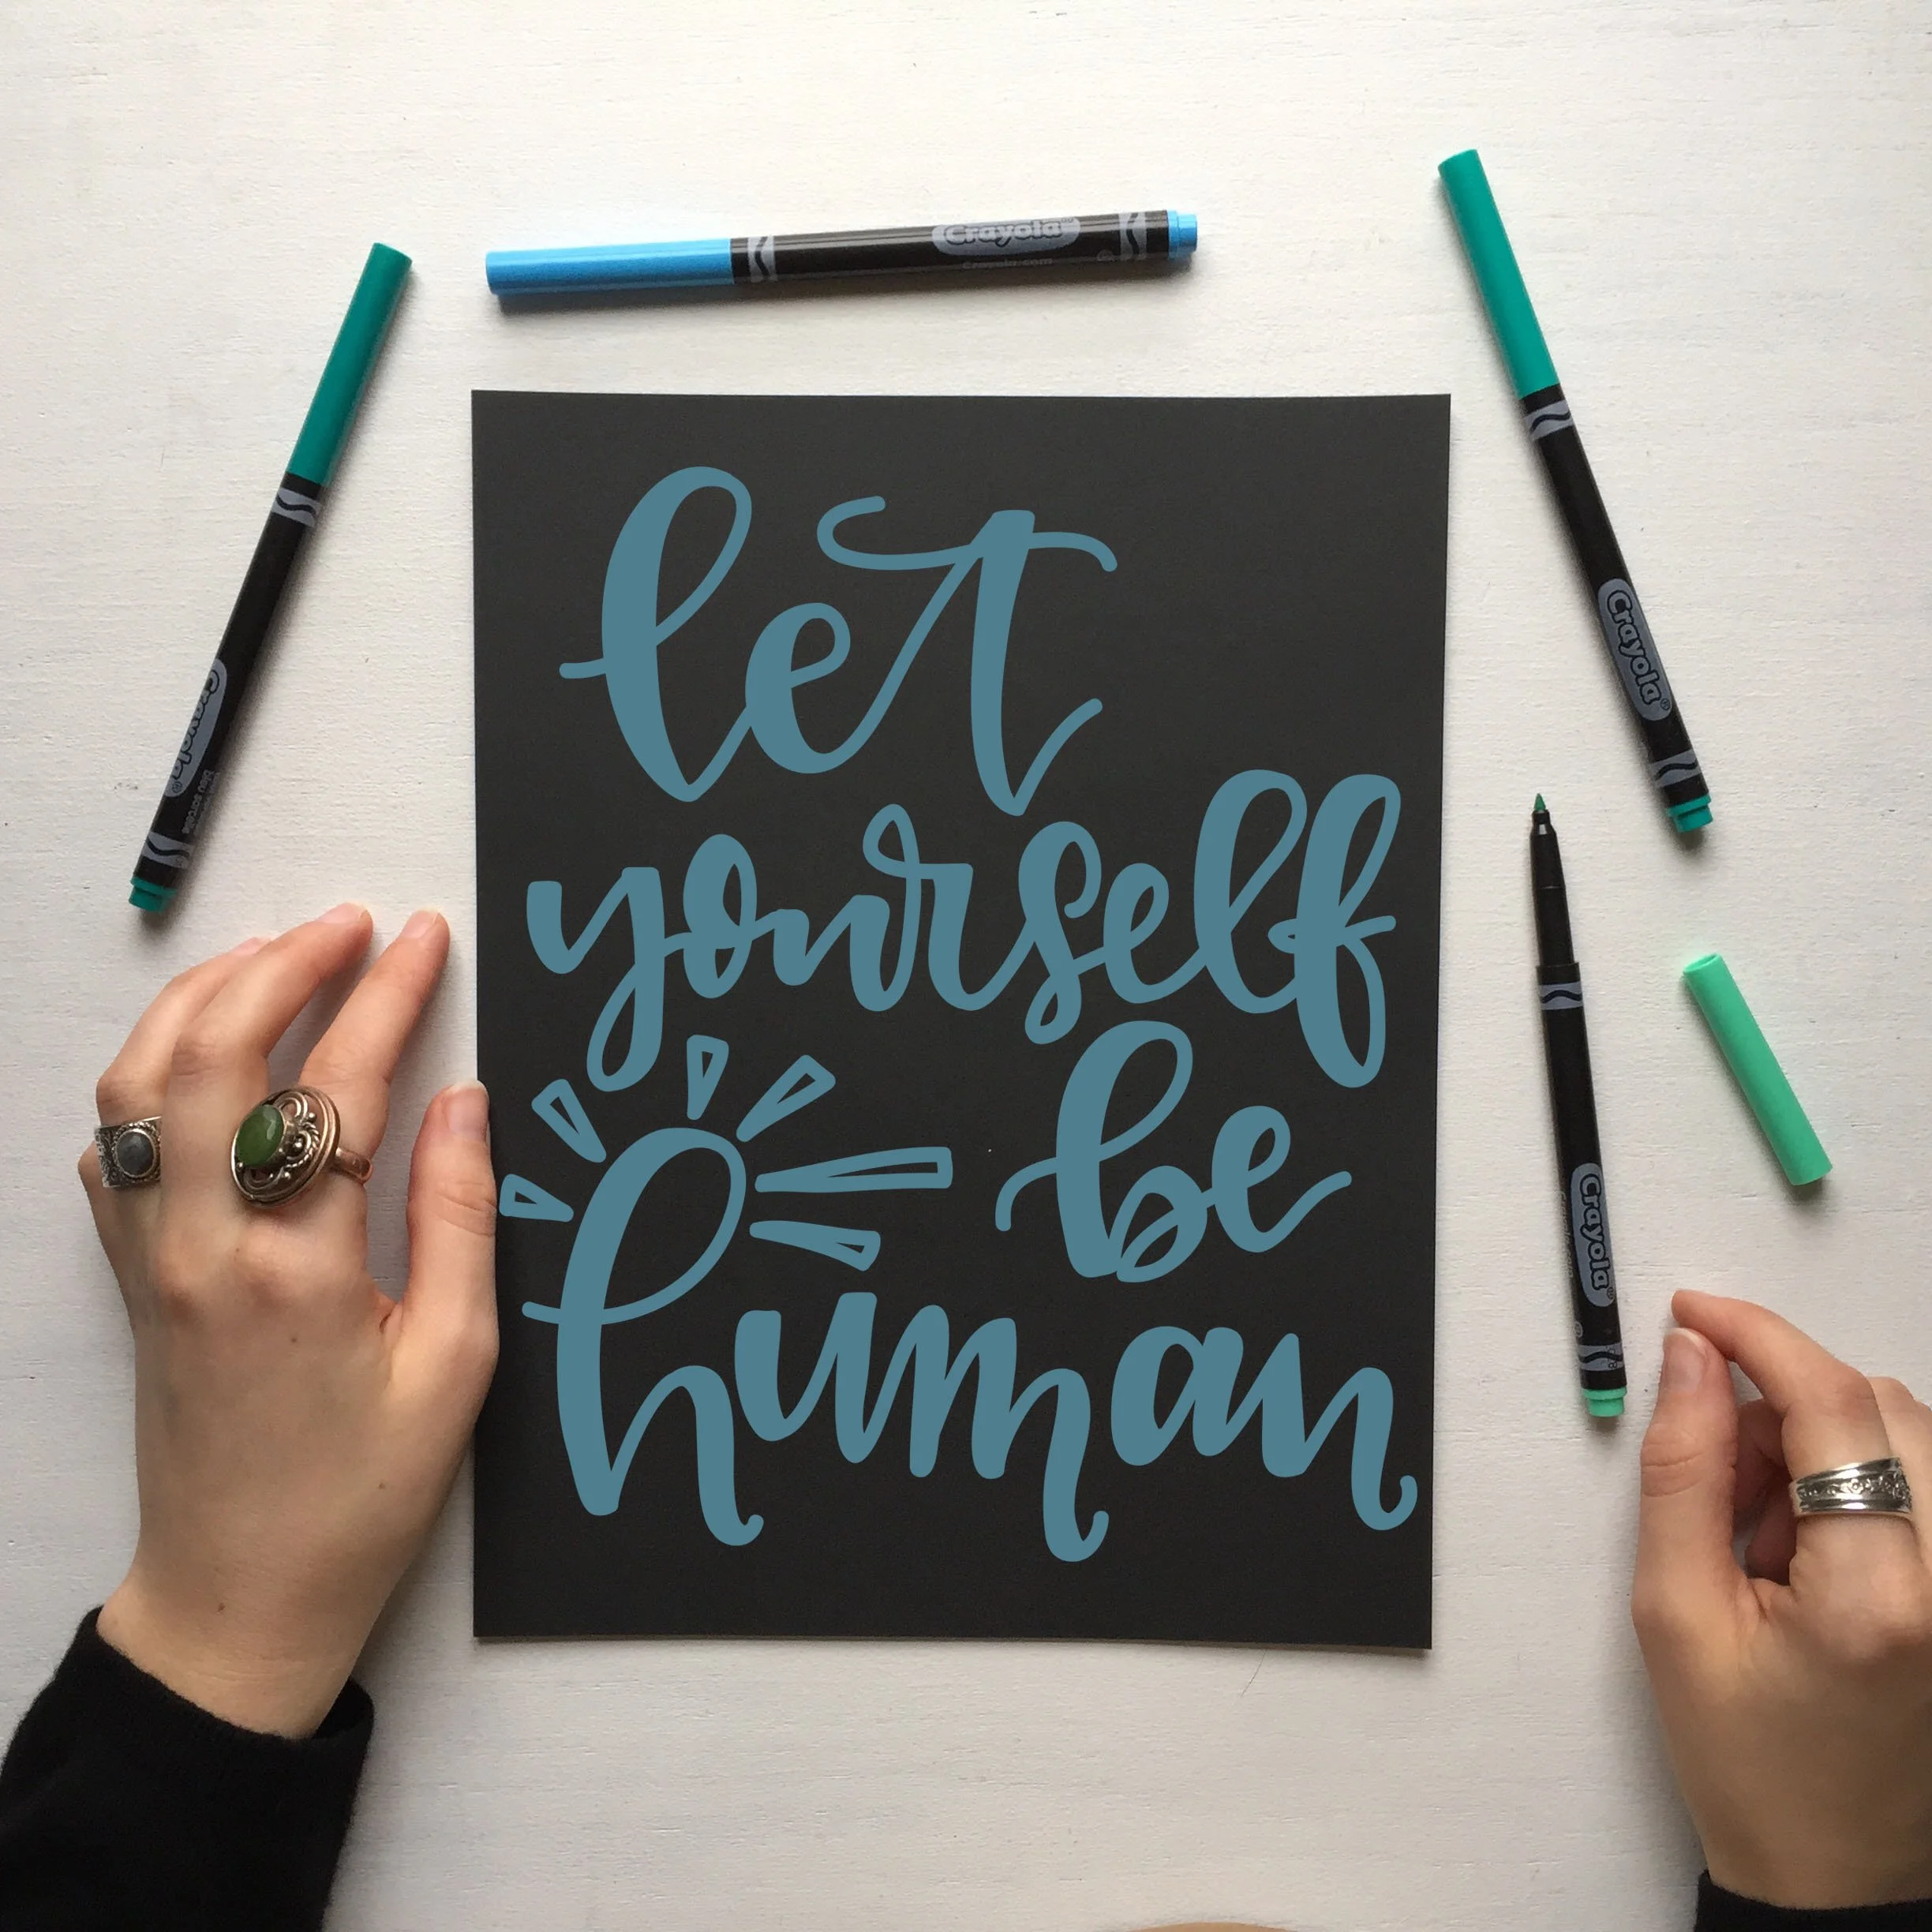 Crayola
Crayola.com
Crayola
Crayola
let
yourself
be
human
Crayola